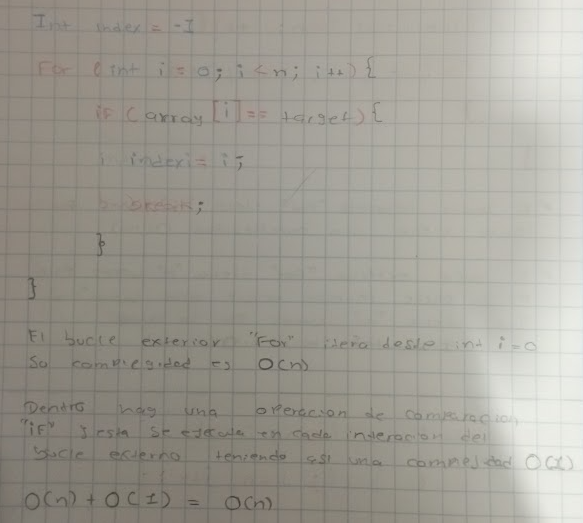 Int index = -I
For (int i = 0; i < n; i++) {
if (array [i] == target) {
index = i;
break;
}
}
El bucle exterior "For" itera desde int i = 0
Su complegidad es O(n)
Dentro hay una operacion de comparacion
"if" y esta se ejecuta en cada interacion del
bucle externo teniendo asi una commeljdad O(I)
O(n) + O(I) = O(n)